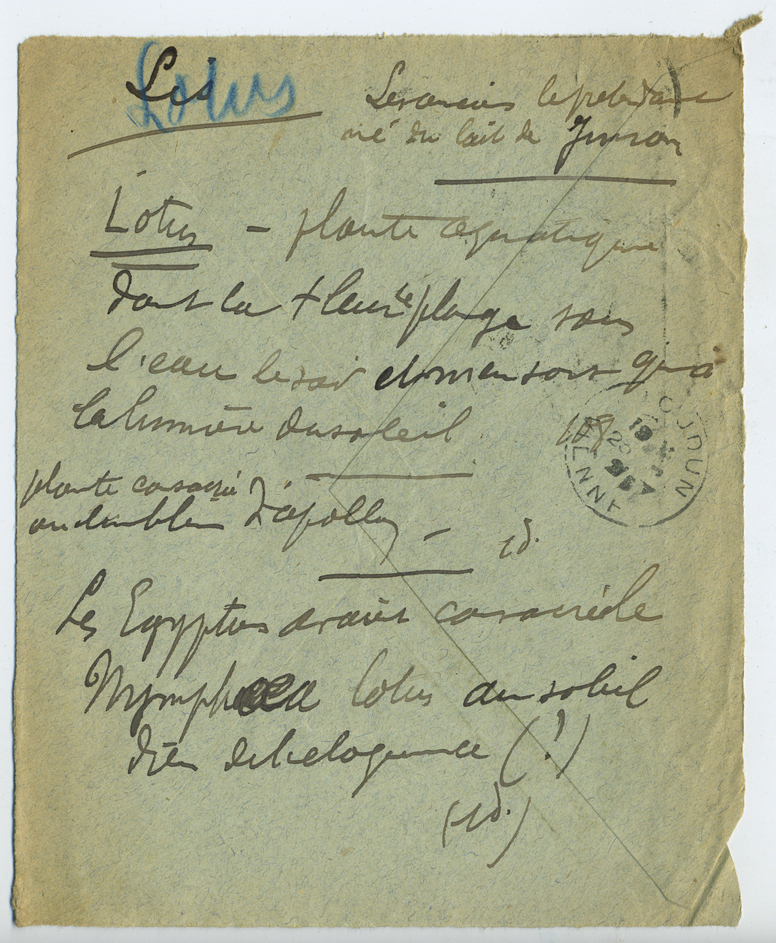 Lis
Lotus
Les anciens le prétendaient
né du lait de Junon
Lotus - plante aquatique
dont la fleur se plonge sous
l'eau le soir et n'en sort qu'à
la lumière du soleil 108
plante consacrée
au temple d'Apollon - id.
Les Egyptiens avaient consacré le
Nymphaea lotus au soleil
dieu de l'eloquence (!)
(id.)
LOUDUN
VIENNE